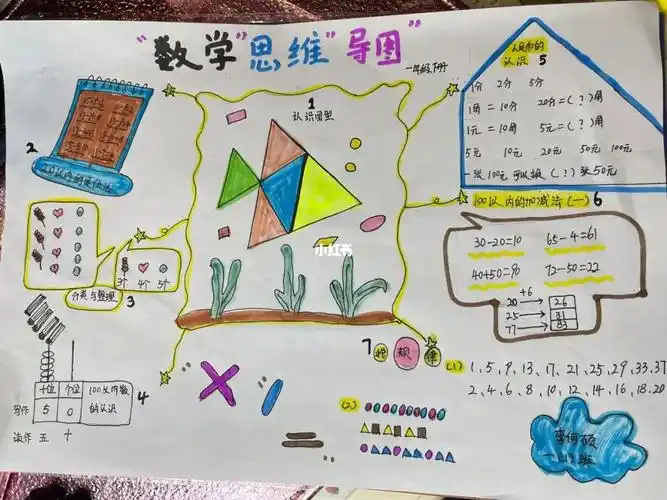 "数学"思维"导图"
一年级下册
1
认识图型
2
20以内的退位法
3
分类与整理
3个 4个 5个
4
十位 个位
100以内数
的认识
写作 5 0
读作 五 十
人民币的
认识 5
1分 2分 5分
1角 = 10分 20分=(?)角
1元 = 10角 5元=(?)角
5元 10元 20元 50元 100元
一张100元可以换(?)张50元
100以内的加减法(一) 6
30-20=10 65-4=61
40+50=90 72-50=22
+6
20 → 26
25 → 31
77 → 83
7 找 规 律
(1) 1,5,9,13,17,21,25,29,33,37
2,4,6,8,10,12,14,16,18,20
(2)
一(1)班
小红书